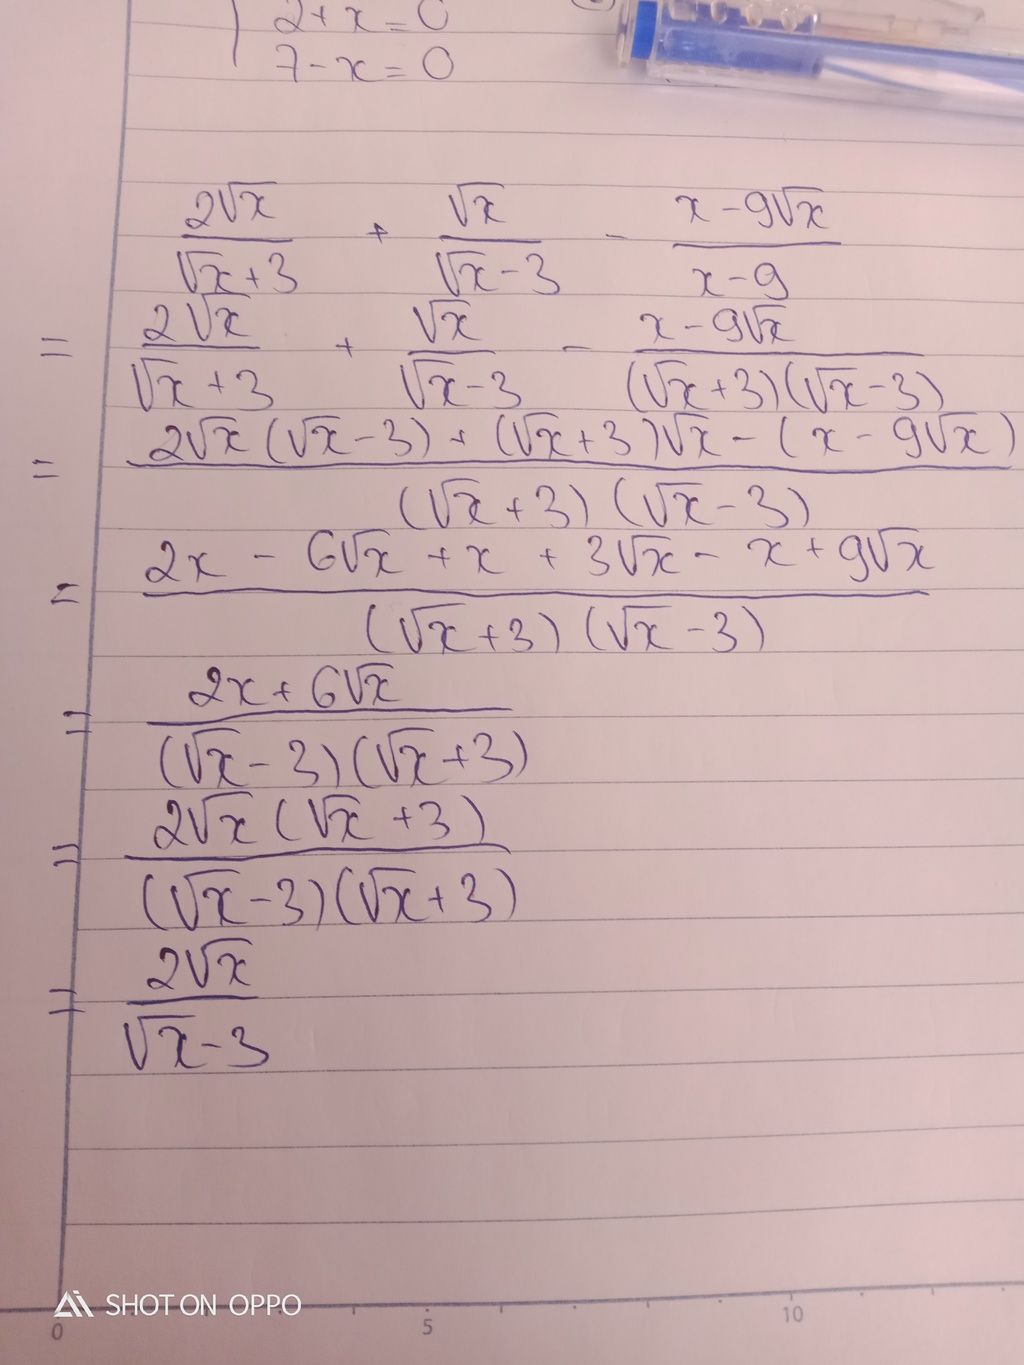 2+x=0
7-x=0
2√x/(√x+3) + √x/(√x-3) - (x-9√x)/(x-9)
= 2√x/(√x+3) + √x/(√x-3) - (x-9√x)/((√x+3)(√x-3))
= (2√x(√x-3)+(√x+3)√x-(x-9√x))/((√x+3)(√x-3))
= (2x-6√x+x+3√x-x+9√x)/((√x+3)(√x-3))
= (2x+6√x)/((√x-3)(√x+3))
= (2√x(√x+3))/((√x-3)(√x+3))
= 2√x/(√x-3)
SHOT ON OPPO
0 5 10